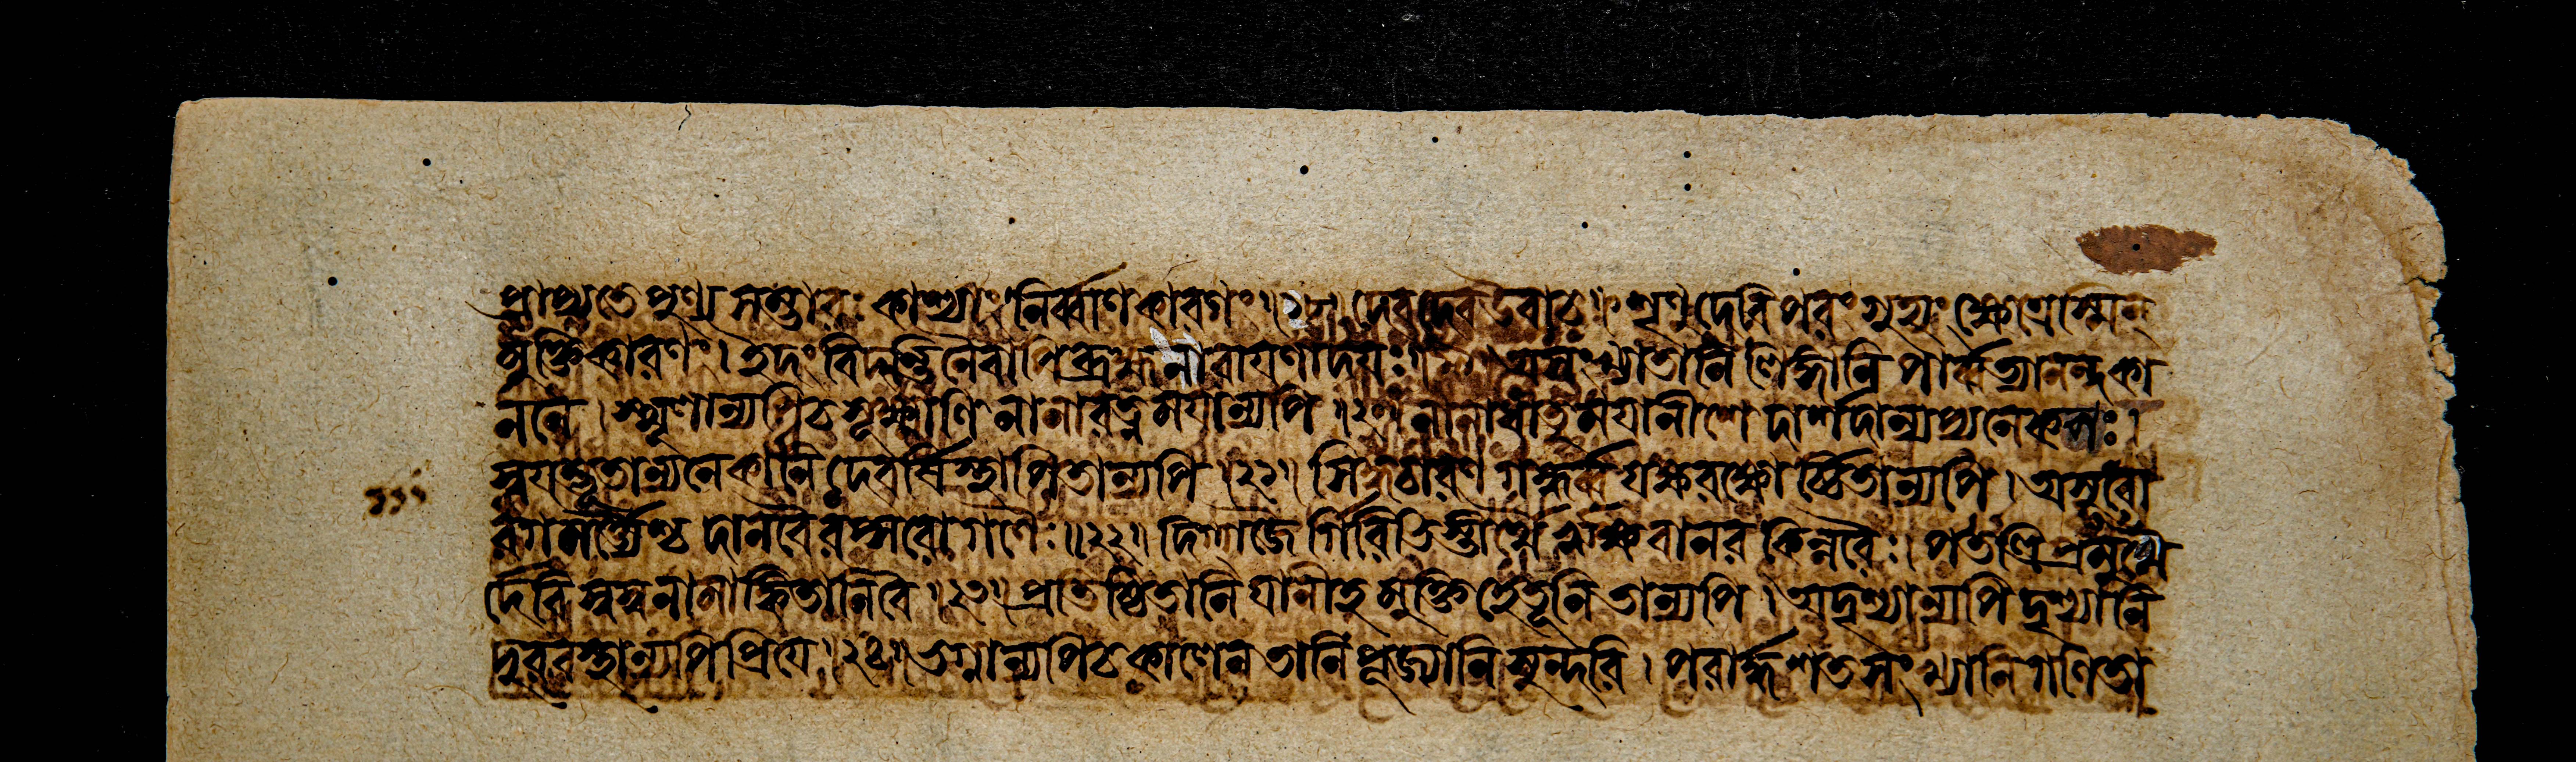 প্রাপ্যতে পুণ্য সম্ভারঃ কাশ্যাং নির্ব্বাণ কারণং ॥১৯॥ দেবদেব উবাচ ॥ শৃণু দেবি পরং গুহ্যং ক্ষেত্রেস্মিন্
মুক্তিকারণং । ইদং বিদন্তি নৈবাপি ব্রহ্মনারায়ণাদয়ঃ ॥২০॥ অসংখ্যাতানি লিঙ্গানি পার্ব্বত্যানন্দকা
ননে । স্থূলান্যপি চ সূক্ষ্মাণি নানারত্নময়ান্যপি ॥২১॥ নানাধাতুময়ানীশে দার্শদান্যপ্যনেকশঃ ।
স্বয়ম্ভূতান্যনেকানি দেবর্ষিস্থাপিতান্যপি ॥২২॥ সিদ্ধচারণ গন্ধর্ব্ব যক্ষরক্ষোর্চ্চিতান্যপি । অসুরো
রগ মর্ত্ত্যৈশ্চ দানবৈরপ্সরোগণৈঃ ॥২২॥ দিগ্গজৈ র্গিরিভিস্তীর্থৈ রৃক্ষ বানর কিন্নরৈঃ । পতত্ত্রি প্রমুখৈ
র্দেবি স্বস্বনামাঙ্কিতানি বৈ ॥২৩॥ প্রতিষ্ঠিতানি যানীহ মুক্তিহেতূনি তান্যপি । অদৃশ্যান্যপি দৃশ্যানি
দুরবস্থান্যপি প্রিয়ে ॥২৪॥ ভগ্নান্যপি চ কালেন তানি পূজ্যানি সুন্দরি । পরার্দ্ধশতসংখ্যানি গণিতা